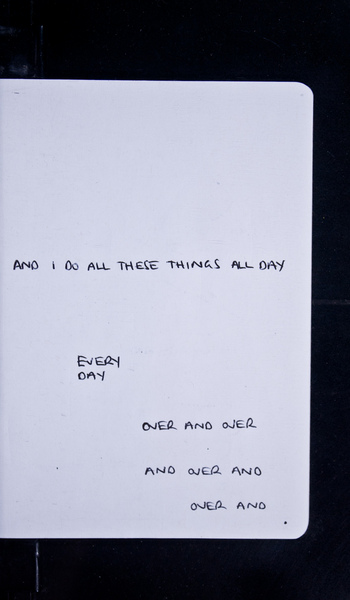 AND I DO ALL THESE THINGS ALL DAY
EVERY
DAY
OVER AND OVER
AND OVER AND
OVER AND